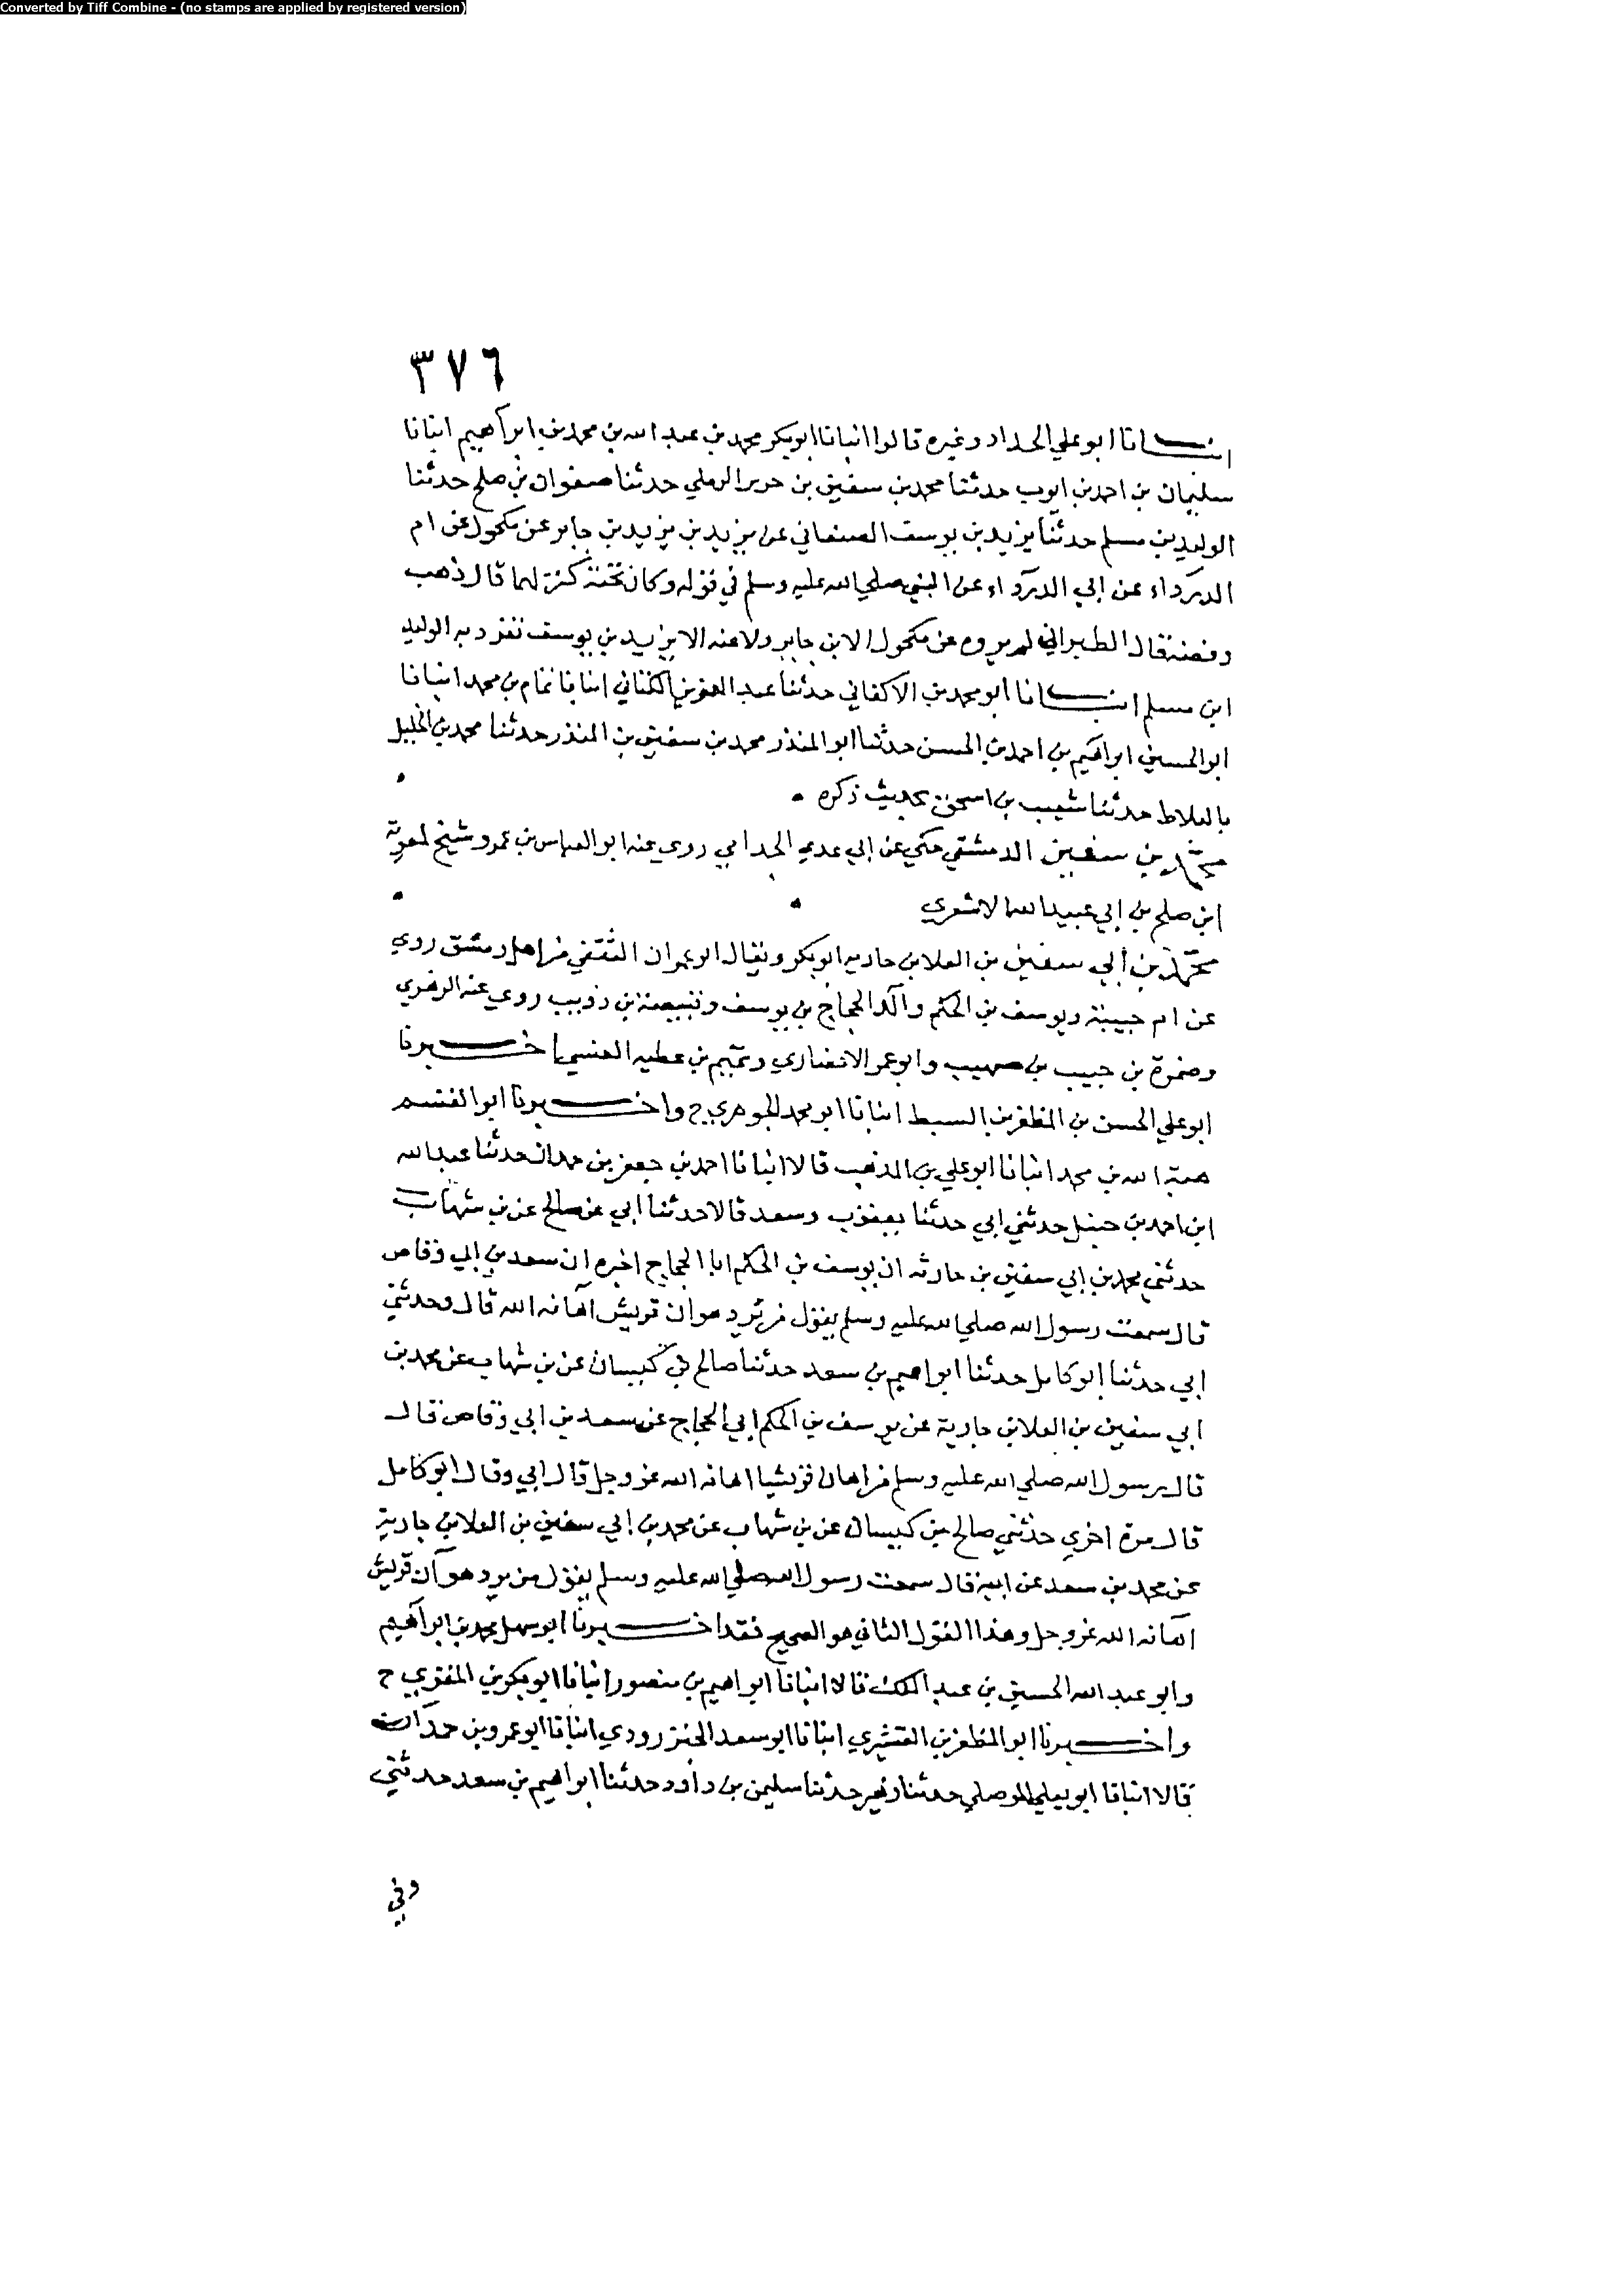 Converted by Tiff Combine - (no stamps are applied by registered version)
٣٧٦
انبانا ابو علي الحداد وغيره قالوا انبانا ابو بكر محمد بن عبد الله بن محمد بن ابراهيم انبانا
سليمان بن احمد بن ايوب حدثنا محمد بن سفين بن حرير الرملي حدثنا صفوان بن صلح حدثنا
الوليد بن مسلم حدثنا يزيد بن يوسف الصنعاني عن يزيد بن يزيد بن جابر عن مكحول عن ام
الدرداء عن ابي الدرداء عن النبي صلي الله عليه وسلم في قوله وكان تحته كنز لهما قال ذهب
وفضة قال الطبراني لم يروه عن مكحول الا بن جابر ولا عنه الا يزيد بن يوسف تفرد به الوليد
ابن مسلم انبانا ابو محمد بن الاكفاني حدثنا عبد العزيز الكناني انبانا تمام بن محمد انبانا
ابو الحسين ابراهيم بن احمد بن الحسن حدثنا ابو المنذر محمد بن سفين بن المنذر حدثنا محمد بن الخليل
بالبلاط حدثنا شعيب بن اسحق بحديث ذكره
محمد بن سفين الدمشقي حكي عن ابي عدي الجدامي روي عنه ابو العباس بن عمرو شيخ لمعوية
ابن صلح بن ابي عبيد الله الاشعري
محمد بن ابي سفين بن العلا بن جاريه ابو بكر ويقال ابو عمران الثقفي من اهل دمشق روي
عن ام حبيبة ويوسف بن الحكم والد الحجاج بن يوسف وقبيصة بن ذويب روي عنه الزهري
وضمرة بن حبيب بن صهيب وابو عمر الانصاري وتميم بن عطيه العنسي اخبرنا
ابو علي الحسن بن المظفر بن السبط انبانا ابو محمد الجوهري ح واخبرنا ابو القسم
هبة الله بن محمد انبانا ابو علي بن المذهب قالا انبانا احمد بن جعفر بن حمدان حدثنا عبد الله
ابن احمد بن حنبل حدثني ابي حدثنا يعقوب وسعد قالا حدثنا ابي عن صالح عن بن شهاب
حدثني محمد بن ابي سفين بن حارثه ان يوسف بن الحكم ابا الحجاج اخبره ان سعد بن ابي وقاص
قال سمعت رسول الله صلي الله عليه وسلم يقول من يرد هوان قريش اهانه الله قال وحدثني
ابي حدثنا ابو كامل حدثنا ابراهيم بن سعد حدثنا صالح بن كيسان عن بن شهاب عن محمد بن
ابي سفين بن العلا بن جارية عن يوسف بن الحكم ابي الحجاج عن سعد بن ابي وقاص قال
قال رسول الله صلي الله عليه وسلم من اهان قريشا اهانه الله عز وجل قال ابي وقال ابو كامل
قال مرة اخري حدثني صالح بن كيسان عن بن شهاب عن محمد بن ابي سفين بن العلا بن جارية
عن محمد بن سعد عن ابيه قال سمعت رسول الله صلي الله عليه وسلم يقول من يرد هوان قريش
اهانه الله عز وجل وهذا القول الثاني هو الصحيح فقد اخبرنا ابو سهل محمد بن ابراهيم
وابو عبد الله الحسين بن عبد الملك قالا انبانا ابراهيم بن منصور انبانا ابو بكر بن المقري ح
واخبرنا ابو المظفر بن القشيري انبانا ابو سعد الجنزرودي انبانا ابو عمرو بن حمدان
قالا انبانا ابو يعلي الموصلي حدثنا زهير حدثنا سليمن بن داود حدثنا ابراهيم بن سعد حدثني